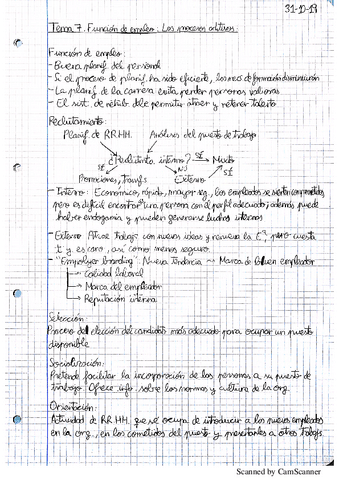 31-10-19
Tema 7. Función de empleo: Los procesos
Función de empleo:
- Buena planif del personal
- Si el proceso de planif ha sido eficiente, los rec de formación disminuirán
- La planif de la carrera evita perder personas valiosas
- El sist. de retrib. debe permitir atraer y retener talento
Reclutamiento:
Planif de RRHH. Análisis del puesto de trabajo
¿Reclutmto. interno? Sí Mixto
Sí No Sí
Promociones, transfs Externo
- Interno: Económico, rápido, mayor seg, los empleados se sienten
pero es difícil encontrar una persona con el perfil adecuado; además puede
haber endogamia y pueden generarse luchas internas
- Externo: Atrae Trabaj. con nuevas ideas y renueva la pero cuesta
t y es caro, así como menos seguro.
- "Employer branding". Nueva Tendencia → Marca de buen empleador
→ Calidad laboral
→ Marca del empleador
→ Reputación interna
Selección:
Proceso de elección del candidato más adecuado para ocupar un puesto
disponible
Socialización:
Pretende facilitar la incorporación de las personas a su puesto de
trabajo. Ofrece info sobre las normas y cultura de la org.
Orientación:
Actividad de RRHH. que se ocupa de introducir a los nuevos empleados
en la org, en los cometidos del puesto y presentarles a otros trabajs.
Scanned by CamScanner